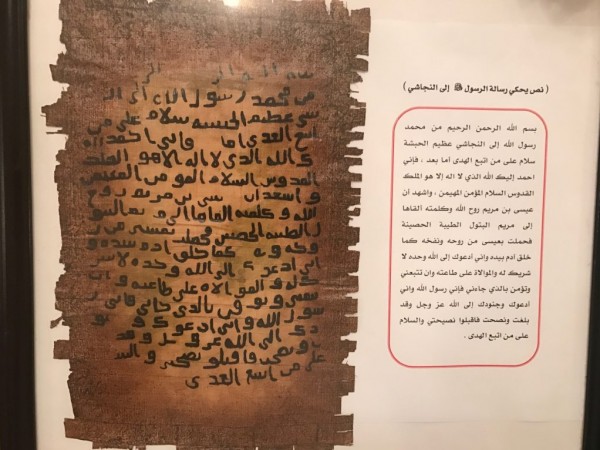 ( نص يحكي رسالة الرسول ﷺ إلى النجاشي )
بسم الله الرحمن الرحيم من محمد
رسول الله إلى النجاشي عظيم الحبشة
سلام على من اتبع الهدى أما بعد ، فإني
احمد إليك الله الذي لا اله إلا هو الملك
القدوس السلام المؤمن المهيمن ، واشهد أن
عيسى بن مريم روح الله وكلمته ألقاها
إلى مريم البتول الطيبة الحصينة
فحملت بعيسى من روحه ونفخه كما
خلق ادم بيده واني أدعوك إلى الله وحده لا
شريك له والموالاة على طاعته وان تتبعني
وتؤمن بالذي جاءني فإني رسول الله واني
أدعوك وجنودك إلى الله عز وجل وقد
بلغت ونصحت فاقبلوا نصيحتي والسلام
على من اتبع الهدى .
محمد رسول الله الى
عظيم الحبسه سلام على من
اتبع الهدى اما فانى احمد
الله الذى لا اله الا هو الملك
القدوس السلام المومن المهيمن
مريم روح
الله وكلمته
الطيبه الحصينه
كما خلق ادم بيده و
الى الله وحده لا سر
له والموالاه على طاعته و ان
بالذى جانى فانى ر
سول الله وانى ادعوك و
الى الله عز و
على من اتبع الهدى